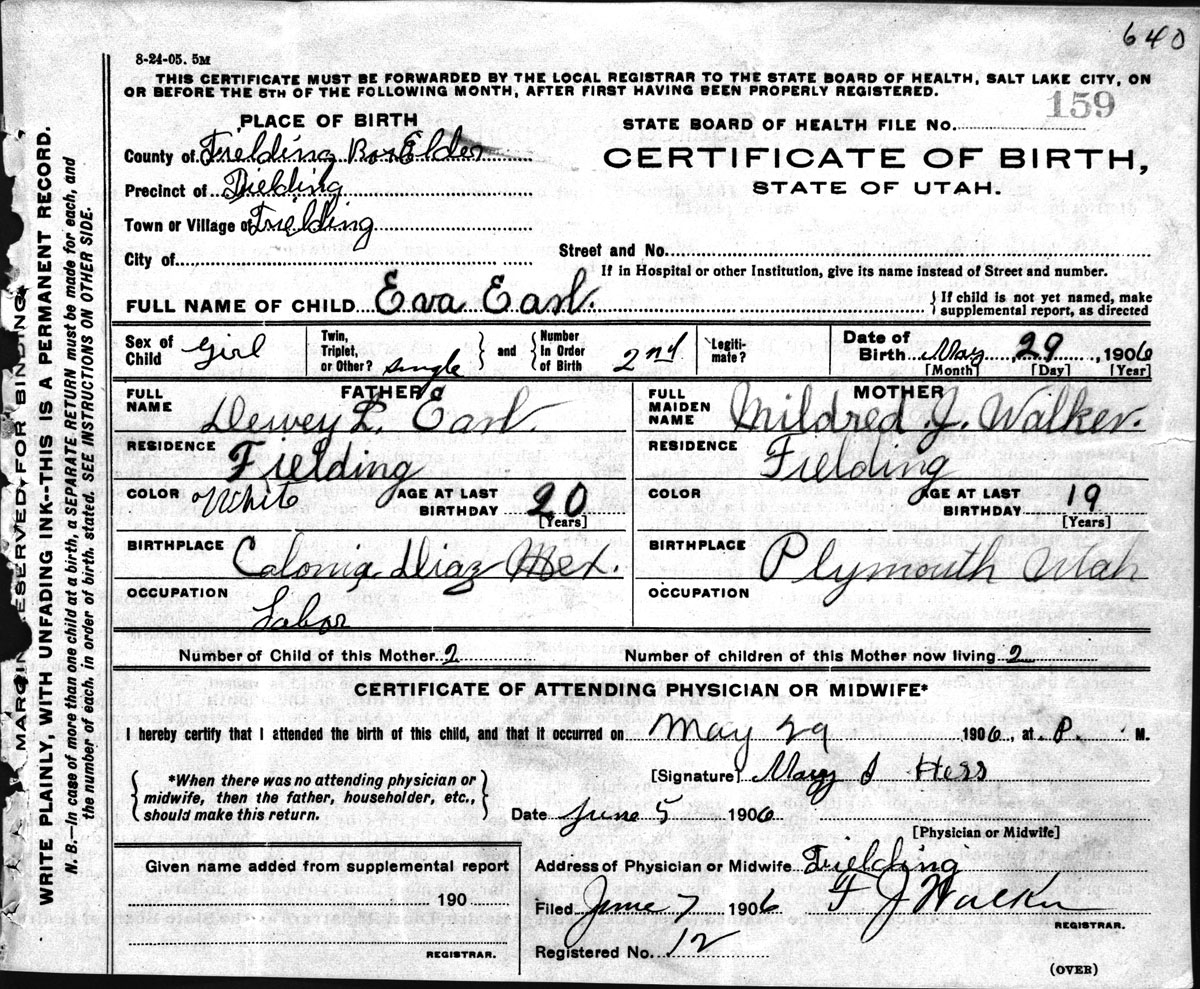 640
8-24-05. 5M
THIS CERTIFICATE MUST BE FORWARDED BY THE LOCAL REGISTRAR TO THE STATE BOARD OF HEALTH, SALT LAKE CITY, ON
OR BEFORE THE 5TH OF THE FOLLOWING MONTH, AFTER FIRST HAVING BEEN PROPERLY REGISTERED.
159
PLACE OF BIRTH
STATE BOARD OF HEALTH FILE No.
County of Fielding Box Elder
CERTIFICATE OF BIRTH,
STATE OF UTAH.
Precinct of Fielding
Town or Village of Fielding
City of
Street and No.
If in Hospital or other Institution, give its name instead of Street and number.
FULL NAME OF CHILD Eva Earl.
{If child is not yet named, make
supplemental report, as directed
Sex of Child Girl
Twin, Triplet, or Other? single } and { Number In Order of Birth 2nd
Legiti-mate?
Date of Birth May 29, 1906
[Month] [Day] [Year]
FATHER
FULL NAME Dewey L. Earl.
MOTHER
FULL MAIDEN NAME Mildred J. Walker.
RESIDENCE Fielding
RESIDENCE Fielding
COLOR White AGE AT LAST BIRTHDAY 20 [Years]
COLOR AGE AT LAST BIRTHDAY 19 [Years]
BIRTHPLACE Colonia Diaz Mex.
BIRTHPLACE Plymouth Utah
OCCUPATION Labor
OCCUPATION
Number of Child of this Mother 2
Number of children of this Mother now living 2
CERTIFICATE OF ATTENDING PHYSICIAN OR MIDWIFE*
I hereby certify that I attended the birth of this child, and that it occurred on May 29 1906, at P. M.
{ *When there was no attending physician or
midwife, then the father, householder, etc.,
should make this return. }
[Signature] Mary J Hess
Date June 5 1906
[Physician or Midwife]
Given name added from supplemental report
190
REGISTRAR.
Address of Physician or Midwife Fielding
Filed June 7 1906 F J Walker
REGISTRAR.
Registered No. 12
(OVER)
MARGIN RESERVED FOR BINDING
WRITE PLAINLY, WITH UNFADING INK--THIS IS A PERMANENT RECORD.
N. B.—In case of more than one child at a birth, a SEPARATE RETURN must be made for each, and
the number of each, in order of birth, stated. SEE INSTRUCTIONS ON OTHER SIDE.